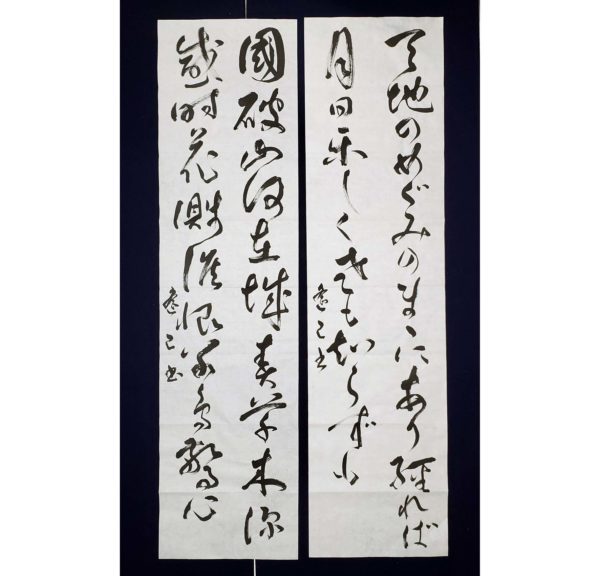 天地のめぐみのまゝにあり經れば
月日楽しく老も知らず
國破山河在城春草木深
感時花濺淚恨別鳥驚心
書